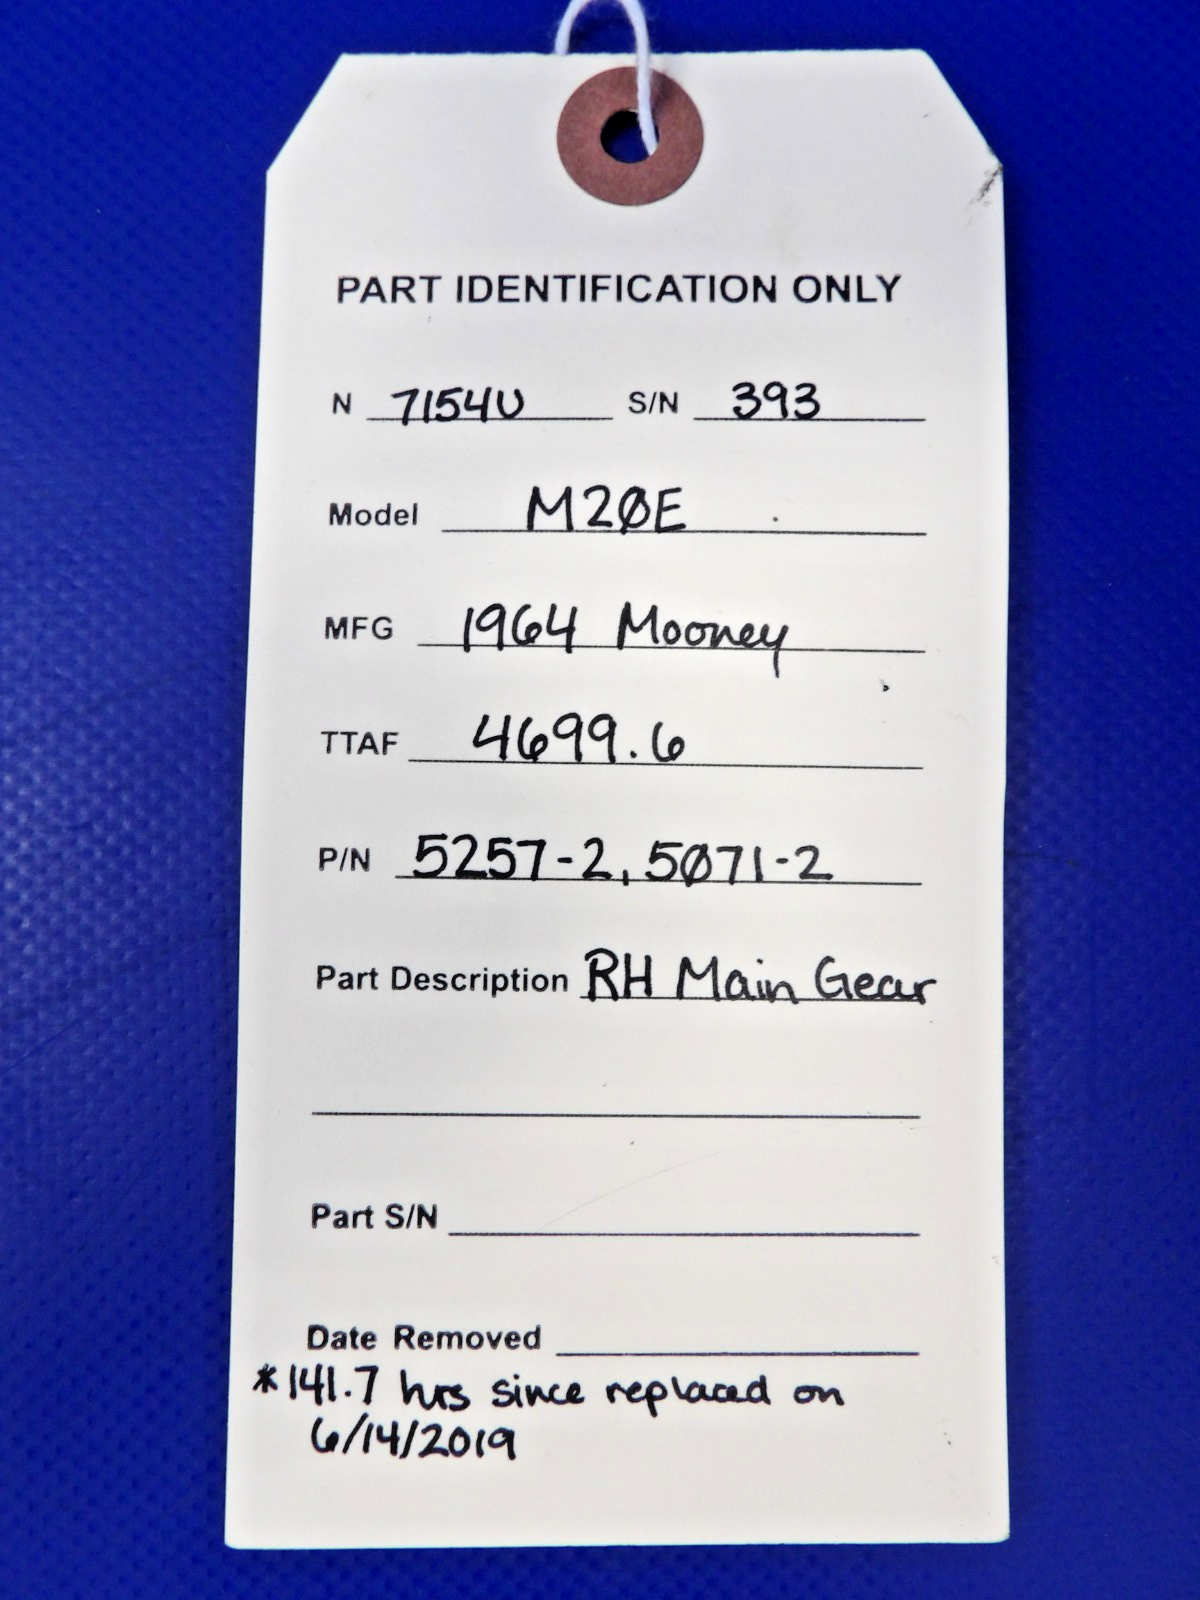 PART IDENTIFICATION ONLY
N 7154U S/N 393
Model M20E
MFG 1964 Mooney
TTAF 4699.6
P/N 5257-2, 5071-2
Part Description RH Main Gear
Part S/N
Date Removed
*141.7 hrs since replaced on
6/14/2019